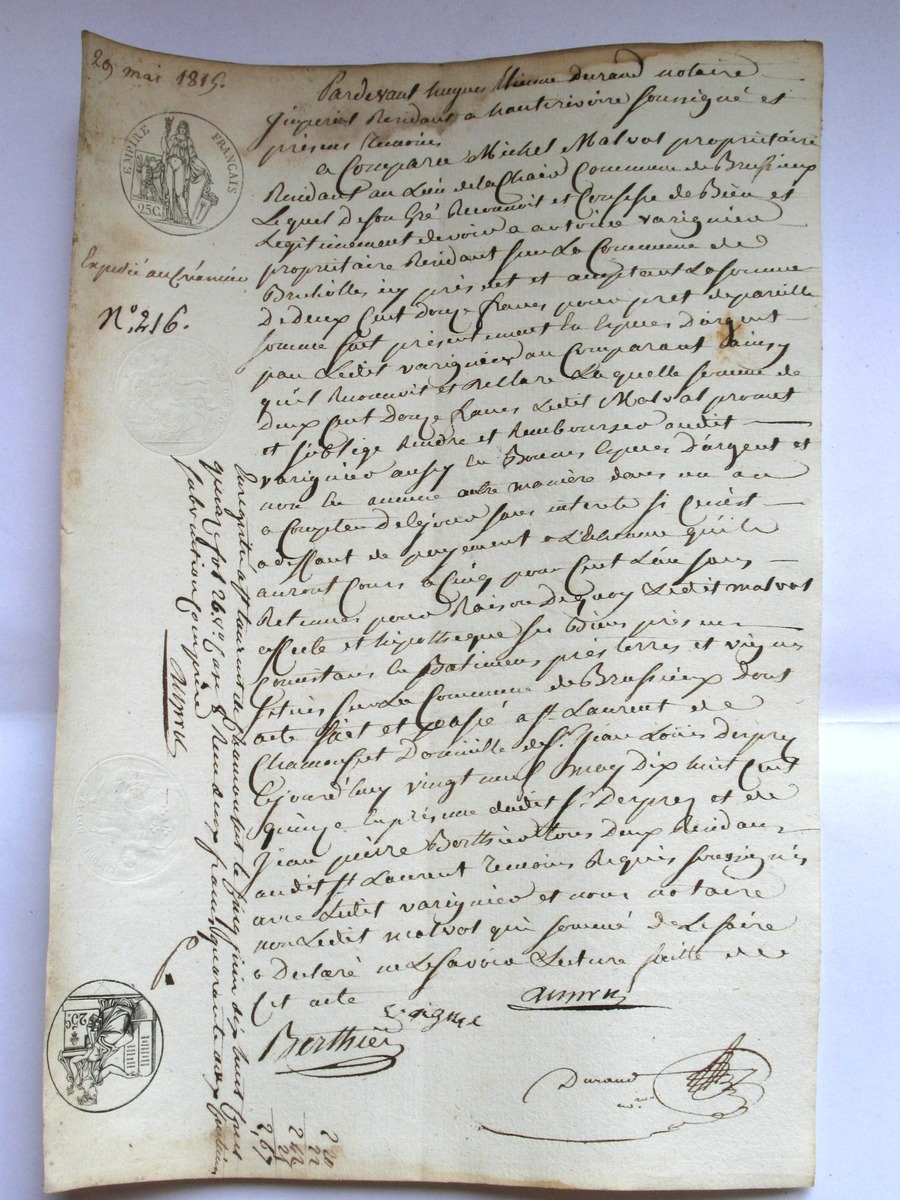 29 mai 1815.
EMPIRE FRANÇAIS
25C.
Expedié au Créancier
N.° 216.
Pardevant hugues Etienne Durand notaire
Imperial Residant a hauterivoire soussigné et
présens Temoins
a Comparu Michel Malvot propriétaire
Residant au Lieu de la Chaise Commune de Brussieux
Lequel De son Gré Reconnoit et Confesse de Bien et
Legitimement devoir a antoine varignier
propriétaire Residant sur La Commune de
Brullolles icy présent et acceptant La somme
De Deux Cent Douze francs pour pret de pareille
somme fait présentement En Espéces D'argent
par Ledit varignier au Comparant Dainsy
qu'il Reconnoit et Desclare Laquelle somme de
Deux Cent Douze francs Ledit Malval promet
et sublige Rendre et Rembourser audit
varignier aussy En Bonnes Espéces D'argent et
non En aucune autre maniére dans un an
a Compter De Ce jour sans interets si Cenest
a deffaut de payement a L'echeance qu'ils
auront Cours a Cinq pour Cent L'an sans
Retenues pour Raison De quoy Ledit malvot
affecte et hipotheque ses Biens présens
Consistans En Batimens prés terres et vignes
situés sur La Commune de Brussieux Dont
acte fait et passé a S.t Laurent de
Chamousset Domicille de S.r Jean Louis Desprez
Lejourd'huy vingt neuf may Dix huit Cent
quinze En présence dudit S.r Desprez et de
Jean pierre Berthier tous deux Residans
audit S.t Laurent temoins Requis soussignés
avec Ledit varignier et nous notaire
non Ledit malvot qui sommé de Le faire
a Declaré ne Le savoir Lecture faitte de
Cet acte
Berthier
Durand
n.re
Enregistré a St Laurent de Chamousset le Cinq juin dix huit Cent
quinze fol. 26 r.° Case 8 Reçu deux francs quarante deux Centimes
subvention Comprise
25C.
2 20
22
2 42
25
2,67